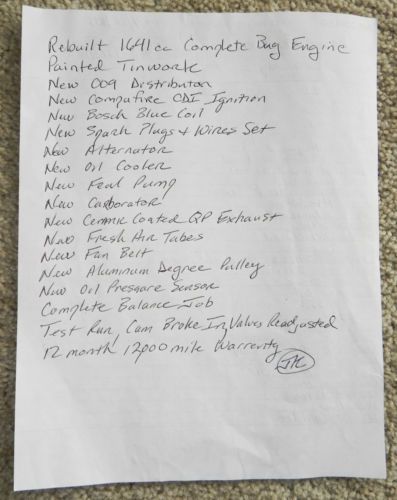 Rebuilt 1641cc Complete Bug Engine
Painted Tinwork
New 009 Distributor
New Compufire CDI Ignition
New Bosch Blue Coil
New Spark Plugs & Wires Set
New Alternator
New Oil Cooler
New Fuel Pump
New Carborator
New Ceramic Coated QP Exhaust
New Fresh Air Tubes
New Fan Belt
New Aluminum Degree Pulley
New Oil Pressure Sensor
Complete Balance Job
Test Run, Cam Broke In, Valves Readjusted
12 month 12000 mile Warrenty